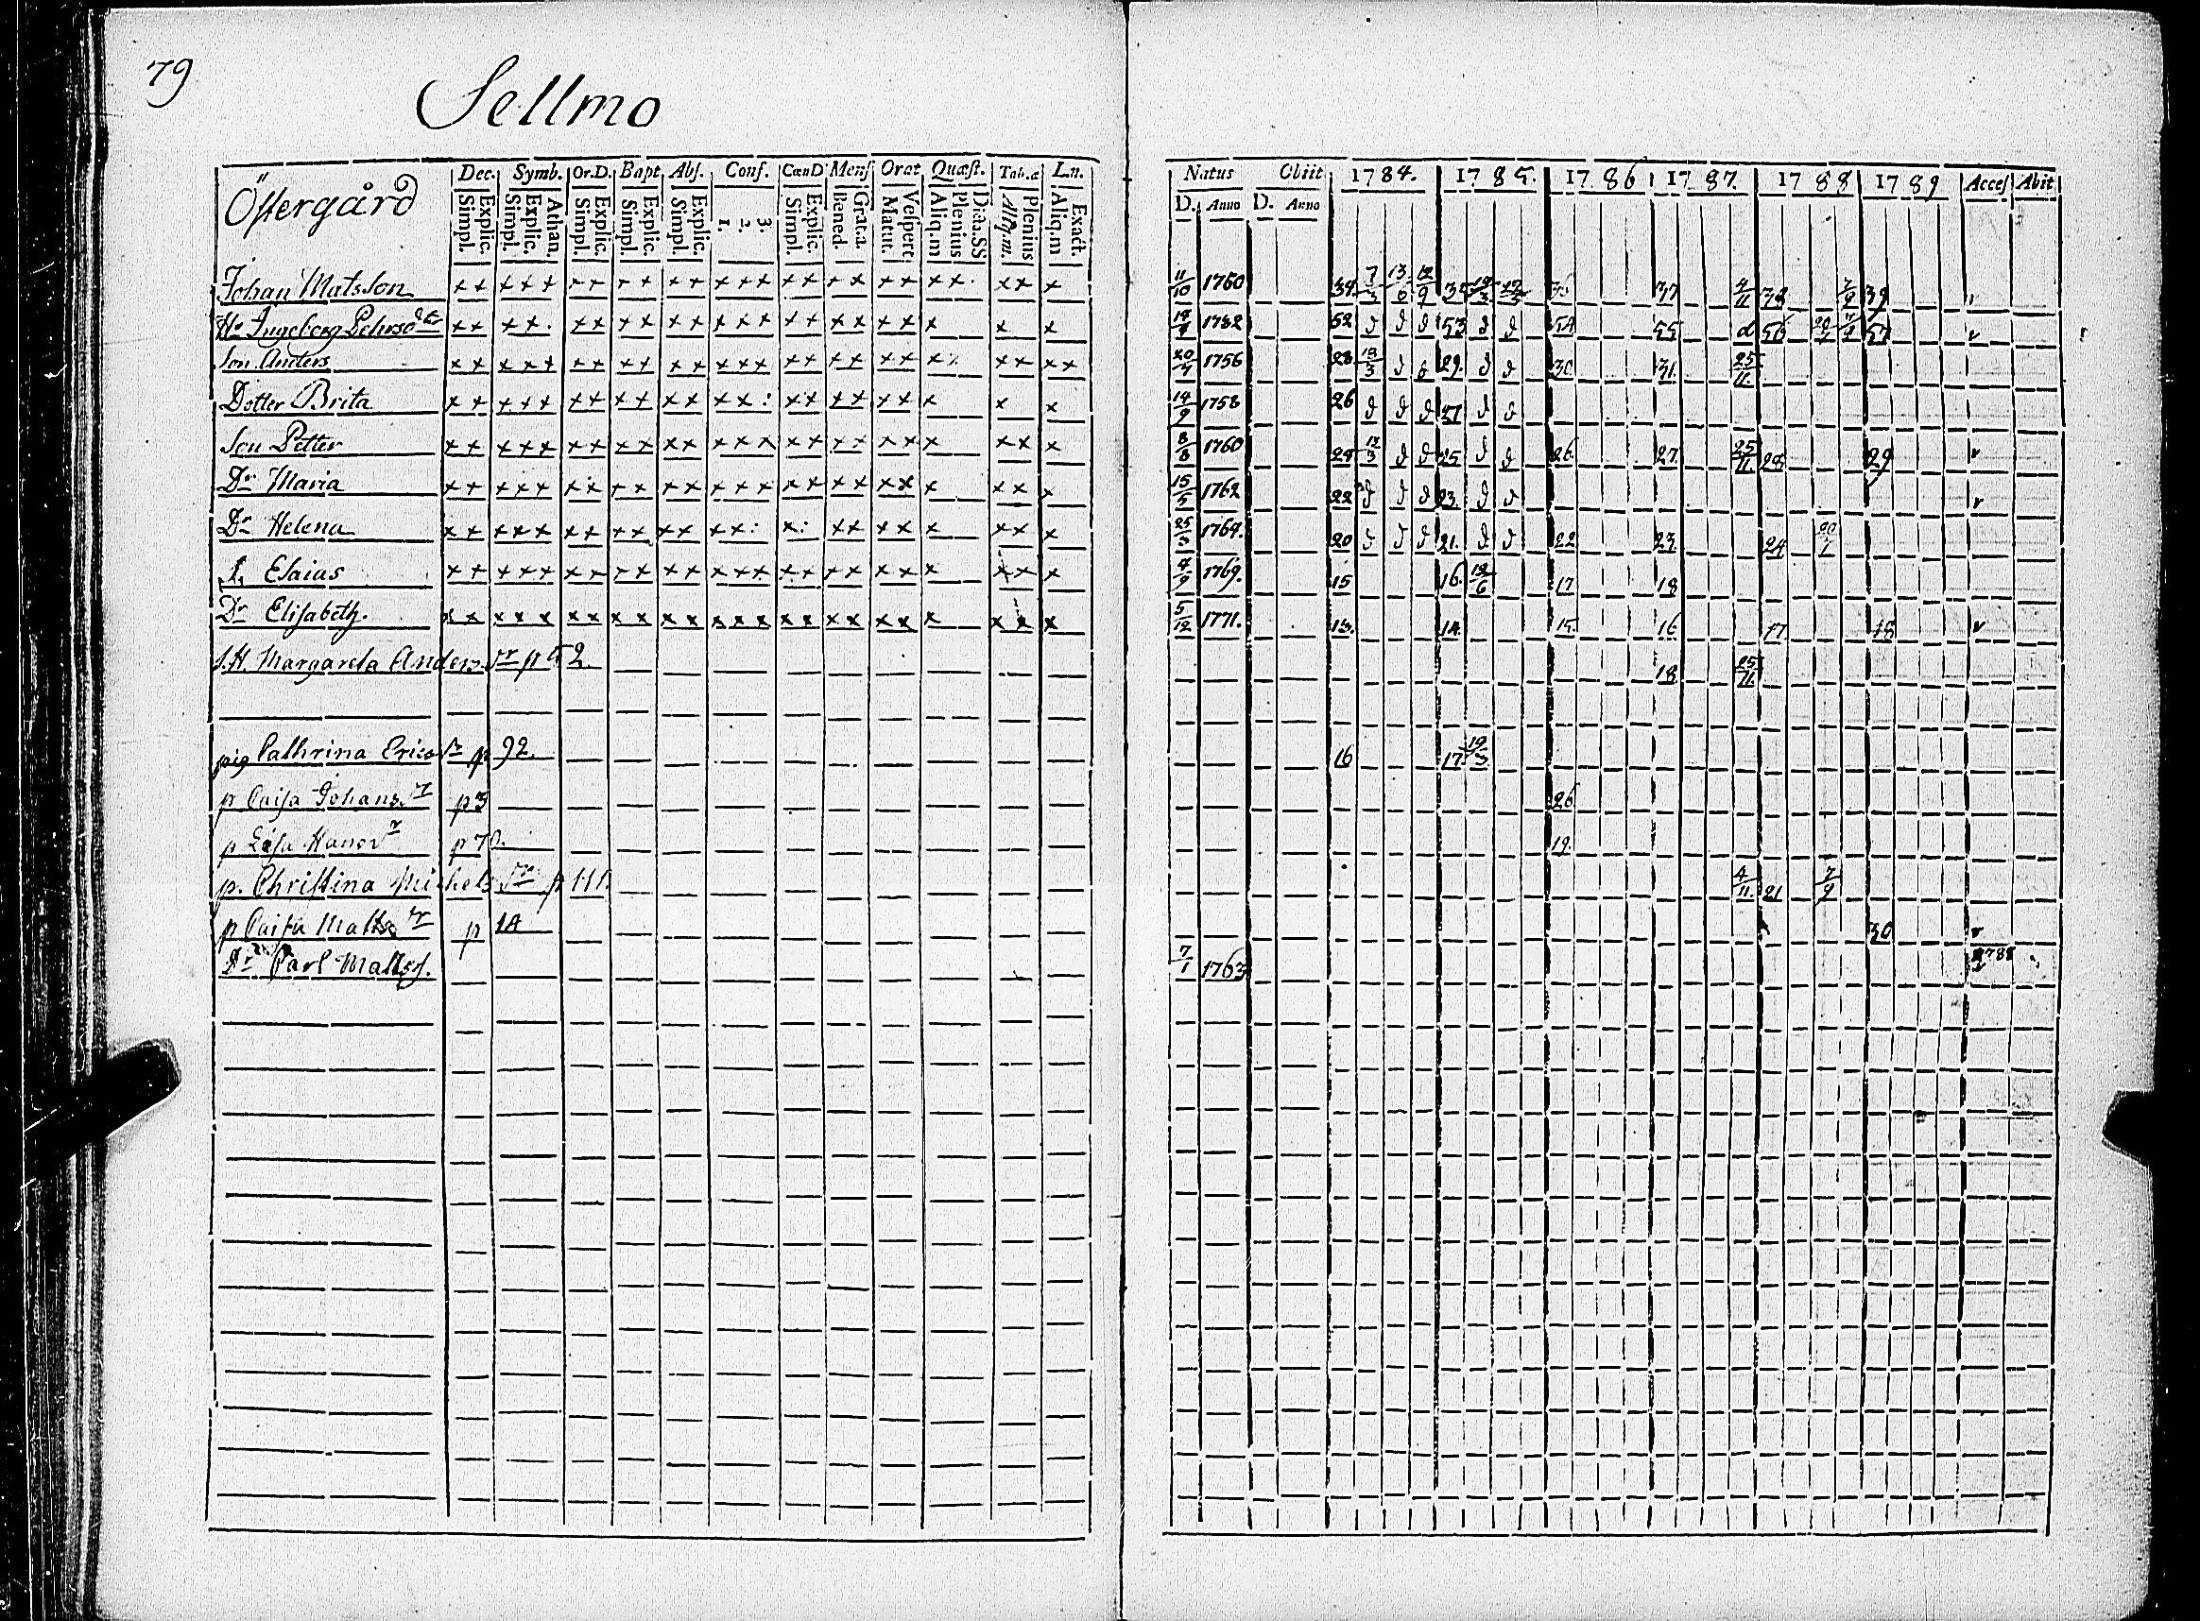 79
Sellmo
Östergård
Dec. Symb. Or.D. Bapt Abs. Conf. CœnD Mens Orat Quæst. Tab.æ L.n.
Simpl. Explic. Simpl. Explic. Athan. Simpl. Explic. Simpl. Explic. Simpl. Explic. 1. 2. 3. Simpl. Explic. Bened. Grat.a Matut. Vespert Aliq.m Plenius Dicta.SS Aliq.m. Plenius Aliq.m Exact.
Natus Obiit 1784. 1785. 1786 1787. 1788 1789 Acces Abit
D. Anno D. Anno
Johan Matsson 11/10 1750 34 7/3 13/6 12/9 35 36 37 4/11 38 7/9 39
Hu Ingeborg Pehrsdr 1732 52 d d d 53 d d 54 55 d 56 57 v
Son Anders 20/4 1756 28 13/3 d d 29. d d 30 31. 25/11.
Dotter Brita 14/9 1758 26 d d d 27 d d
Son Petter 8/8 1760 24 13/3 d d 25 d d 26 27 25/11. 28 29 v
Dr Maria 15/5 1762 22 d d d 23. d d v
Dr Helena 25/3 1764. 20 d d d 21. d d 22 23. 24 20/7
S. Esaias 4/9 1769. 15 16. 12/6 17 18
Dr Elisabeth. 5/12 1771. 13. 14. 15 16 17 18 v
S.H. Margareta Anders dr p 52. 18 25/11.
pig Cathrina Erics dr p 92. 16 17 19/3
p Caisa Johans. dr p 3 26
p 19.
p. Christina Michels dr p 111. 4/11. 21 7/9
p Caisa Matts dr p 14 30 v
Dr Carl Mattss. 7/1 1763 1788